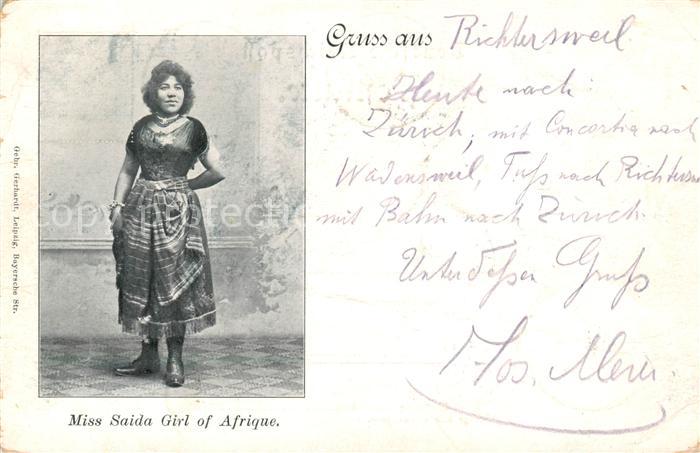 Gruss aus Richtersweil
Heute nach
Zürich, mit Concordia nach
Wädensweil, Fuss nach Richtersw
mit Bahn nach Zürich.
Unterdessen Gruss
Jos. Meier.
Gebr. Gerhardt, Leipzig, Bayersche Str.
Miss Saida Girl of Afrique.
copyright protection